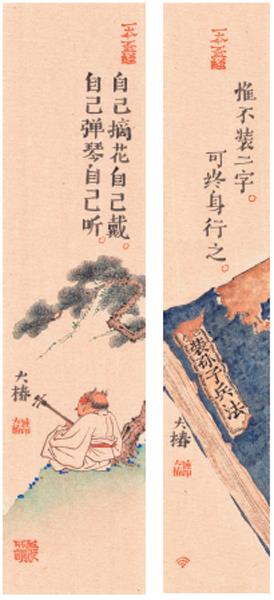 自己摘花自己戴。
自己弹琴自己听。
大椿
惟不装二字。
可终身行之。
装孙子兵法
大椿